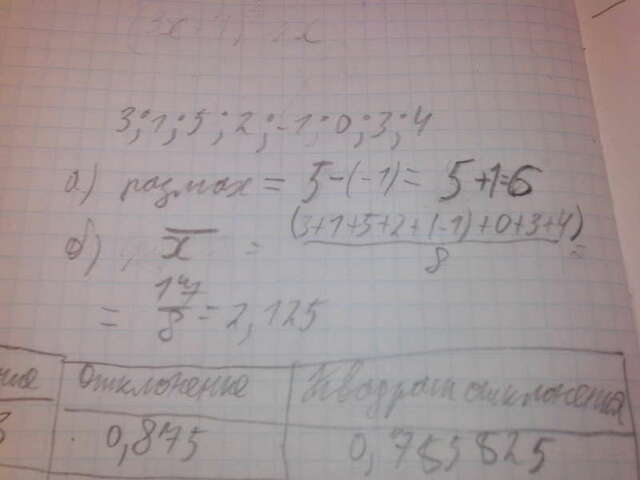 3; 1; 5; 2; -1; 0; 3; 4
а) размах = 5-(-1) = 5+1=6
б) x̄ = (3+1+5+2+(-1)+0+3+4) / 8 =
= 17/8 = 2,125
отклонение | Квадрат отклонения
0,875 | 0,765625